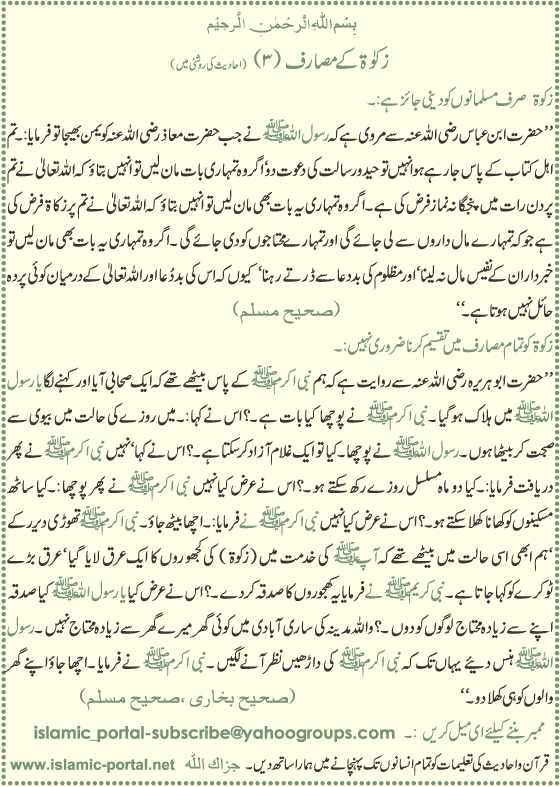 بِسْمِ اللهِ الْرَحْمٰنِ الْرَحِيْمِ
زکوٰۃ کے مصارف (۳) (احادیث کی روشنی میں)
زکوٰۃ صرف مسلمانوں کو دینی جائز ہے:۔
’’حضرت ابن عباس رضی اللہ عنہ سے مروی ہے کہ رسول اللہ ﷺ نے جب حضرت معاذ رضی اللہ عنہ کو یمن بھیجا تو فرمایا:۔ تم
اہل کتاب کے پاس جا رہے ہو انہیں توحید ورسالت کی دعوت دو‘ اگر وہ تمہاری بات مان لیں تو انہیں بتاؤ کہ اللہ تعالیٰ نے تم
پر دن رات میں پنجگانہ نماز فرض کی ہے۔ اگر وہ تمہاری یہ بات بھی مان لیں تو انہیں بتاؤ کہ اللہ تعالیٰ نے تم پر زکاۃ فرض کی
ہے جو کہ تمہارے مال داروں سے لی جائے گی اور تمہارے محتاجوں کو دی جائے گی ۔ اگر وہ تمہاری یہ بات بھی مان لیں تو
خبردار ان کے نفیس مال نہ لینا‘ اور مظلوم کی بددعا سے ڈرتے رہنا‘ کیوں کہ اس کی بددُعا اور اللہ تعالیٰ کے درمیان کوئی پردہ
حائل نہیں ہوتا ہے۔‘‘ (صحیح مسلم)
زکوٰۃ کو تمام مصارف میں تقسیم کرنا ضروری نہیں:۔
’’حضرت ابو ہریرہ رضی اللہ عنہ سے روایت ہے کہ ہم نبی اکرم ﷺ کے پاس بیٹھے تھے کہ ایک صحابی آیا اور کہنے لگا یا رسول
اللہ ﷺ میں ہلاک ہو گیا۔ نبی اکرم ﷺ نے پوچھا کیا بات ہے۔؟ اس نے کہا:۔ میں روزے کی حالت میں بیوی سے
صحبت کر بیٹھا ہوں۔ رسول اللہ ﷺ نے پوچھا۔ کیا تو ایک غلام آزاد کر سکتا ہے۔؟ اس نے کہا‘ نہیں نبی اکرم ﷺ نے پھر
دریافت فرمایا:۔ کیا دو ماہ مسلسل روزے رکھ سکتے ہو۔؟ اس نے عرض کیا نہیں نبی اکرم ﷺ نے پھر پوچھا:۔ کیا ساٹھ
مسکینوں کو کھانا کھلا سکتے ہو۔؟ اس نے عرض کیا نہیں نبی اکرم ﷺ نے فرمایا:۔ اچھا بیٹھ جاؤ۔ نبی اکرم ﷺ تھوڑی دیر رکے
‘ہم ابھی اسی حالت میں بیٹھے تھے کہ آپ ﷺ کی خدمت میں (زکوۃ) کی کھجوروں کا ایک عرق لایا گیا‘ عرق بڑے
ٹوکرے کو کہا جاتا ہے۔ نبی کریم ﷺ نے فرمایا یہ کھجوروں کا صدقہ کر دے۔؟ اس نے عرض کیا یا رسول اللہ ﷺ کیا صدقہ
اپنے سے زیادہ محتاج لوگوں کو دوں۔؟ واللہ مدینہ کی ساری آبادی میں کوئی گھر میرے گھر سے زیادہ محتاج نہیں ۔ رسول
اللہ ﷺ ہنس دیئے یہاں تک کہ نبی اکرم ﷺ کی داڑھیں نظر آنے لگیں۔ نبی اکرم ﷺ نے فرمایا ۔ اچھا جاؤ اپنے گھر
والوں کو ہی کھلا دو۔‘‘ (صحیح بخاری ،صحیح مسلم)
ممبر بننے کیلئے ای میل کریں :۔ islamic_portal-subscribe@yahoogroups.com
قرآن و احادیث کی تعلیمات کو تمام انسانوں تک پہنچانے میں ہمارا ساتھ دیں۔ جزاك الله www.islamic-portal.net